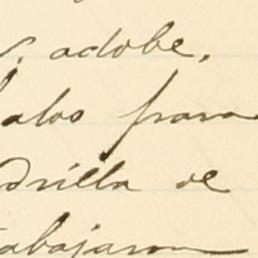 adobe.
alos para
drilla de
abajaron